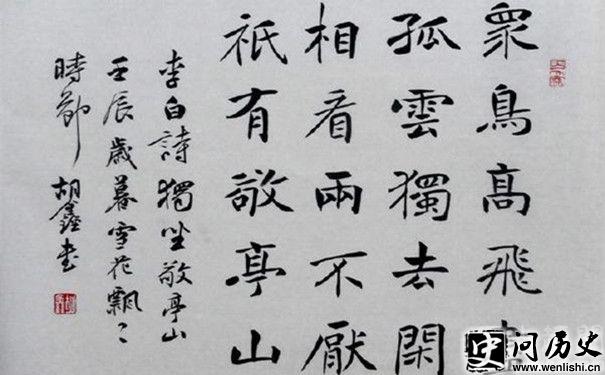 衆鳥高飛盡
孤雲獨去閑
相看兩不厭
祇有敬亭山
李白詩獨坐敬亭山
壬辰歲暮雪花飄〻
時節 胡鑫書
问历史
www.wenlishi.cn